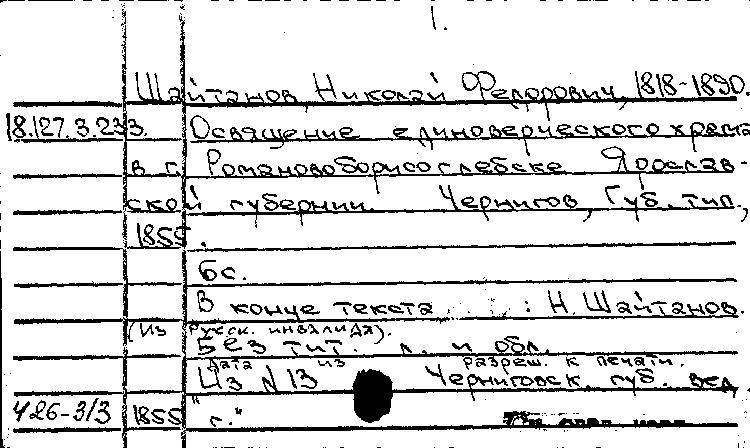 1.
Шайтанов, Николай Федорович, 1818-1890.
18.127.3.233. Освящение единоверческого храма
в г. Романовоборисоглебске Ярослав-
ской губернии. Чернигов, Губ. тип.,
1855.
6с.
В конце текста : Н. Шайтанов.
(Из Русск. инвалида).
Без тит. л. и обл.
Дата из разреш. к печати.
Из N 13 Черниговск. губ. вед.
426-313 1855 г."